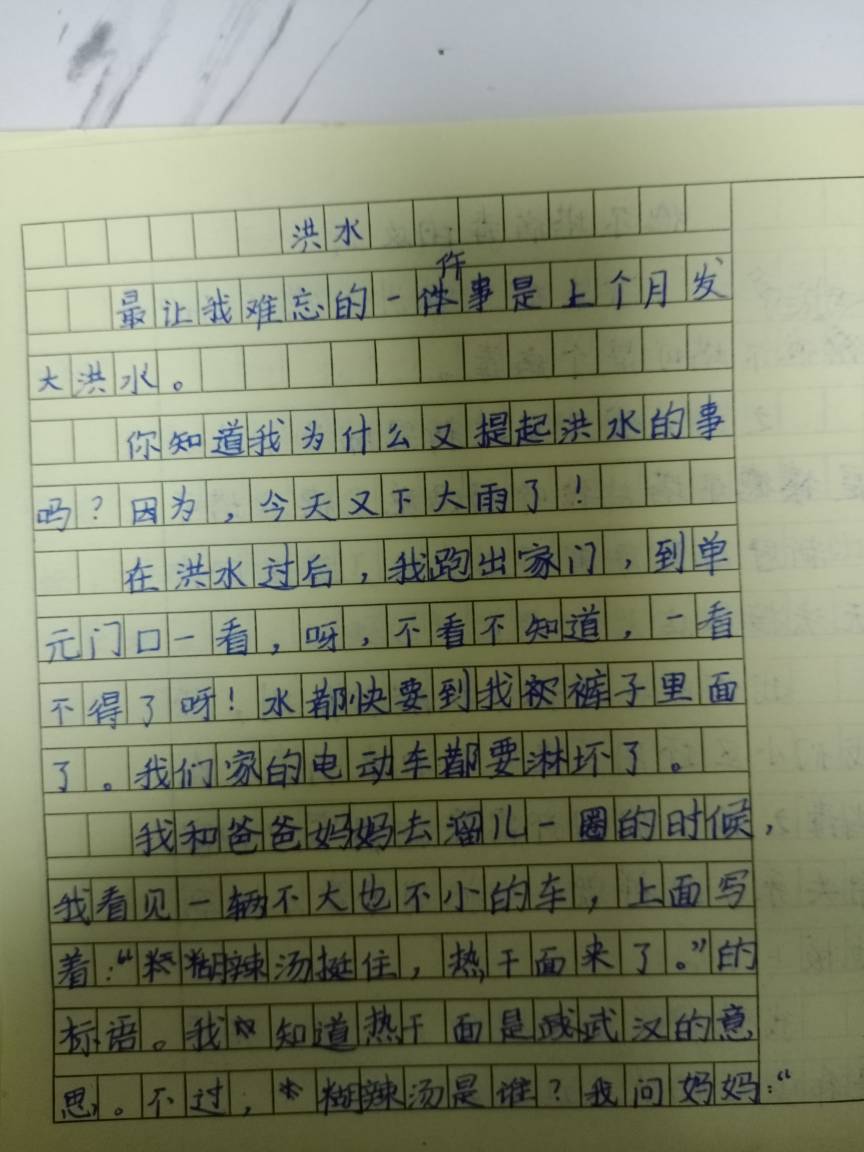 洪水
最让我难忘的一件事是上个月发
大洪水。
你知道我为什么又提起洪水的事
吗？因为，今天又下大雨了！
在洪水过后，我跑出家门，到单
元门口一看，呀，不看不知道，一看
不得了呀！水都快要到我裤子里面
了。我们家的电动车都要淋坏了。
我和爸爸妈妈去溜儿一圈的时候，
我看见一辆不大也不小的车，上面写
着：“糊辣汤挺住，热干面来了。”的
标语。我知道热干面是武汉的意
思。不过，糊辣汤是谁？我问妈妈：“